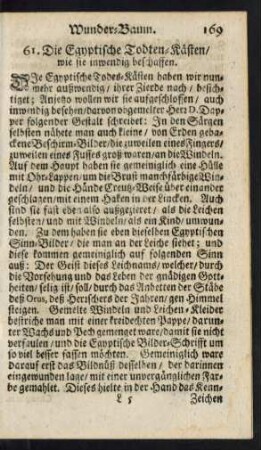 Wunder-Baum. 169
61. Die Egyptische Todten-Kästen/
wie sie inwendig beschaffen.
Die Egyptische Todes-Kästen haben wir nun-
mehr außwendig/ ihrer Zierde nach/ besich-
tiget; Anjetzo wollen wir sie aufgeschlossen/ auch
inwendig besehen/ darvon vogemelter Herr D. Dap-
per folgender Gestalt schreibet: In den Särgen
selbsten nähete man auch kleine/ von Erden geba-
ckene Beschirm-Bilder/ die zuweilen eines Fingers/
zuweilen eines Fusses groß waren/ an die Windeln.
Auf dem Haupt haben sie gemeiniglich eine Hülle
mit Ohr-Lappen/ um die Brust manchfärbige Win-
deln/ und die Hände Creutz-Weise über einander
geschlagen/ mit einem Haken in der Lincken. Auch
sind sie fast eben also außgezieret/ als die Leichen
selbsten/ und mit Windeln/ als ein Kind/ umwun-
den. Zu dem haben sie eben dieselben Egyptischen
Sinn-Bilder/ die man an der Leiche siehet; und
diese kommen gemeiniglich auf folgenden Sinn
auß: Der Geist dieses Leichnams/ welcher/ durch
die Vorsehung und das Leben der gnädigen Gott-
heiten/ selig ist/ soll/ durch das Anbetten der Stäbe
deß Orus, deß Herrschers der Jahren/ gen Himmel
steigen. Gemelte Windeln und Leichen-Kleider
bestriche man mit einer kreidechten Pappe/ darun-
ter Wachs und Pech gemenget ware/ damit sie nicht
verfaulen/ und die Egyptische Bilder-Schrifft um
so viel besser fassen möchten. Gemeiniglich ware
darauf erst das Bildnüß desselben/ der darinnen
eingewunden lage/ mit einer unvergänglichen Far-
be gemahlet. Dieses hielte in der Hand das Kenn-
L 5 Zeichen